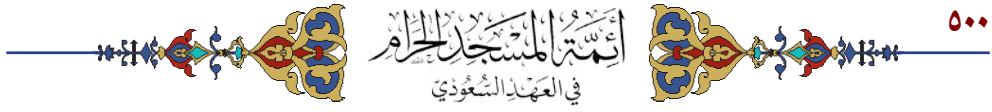 ٥٠٠
أَئِمَّةُ المَسْجِدِ الحَرَامِ
فِي العَهْدِ السُّعُودِيّ